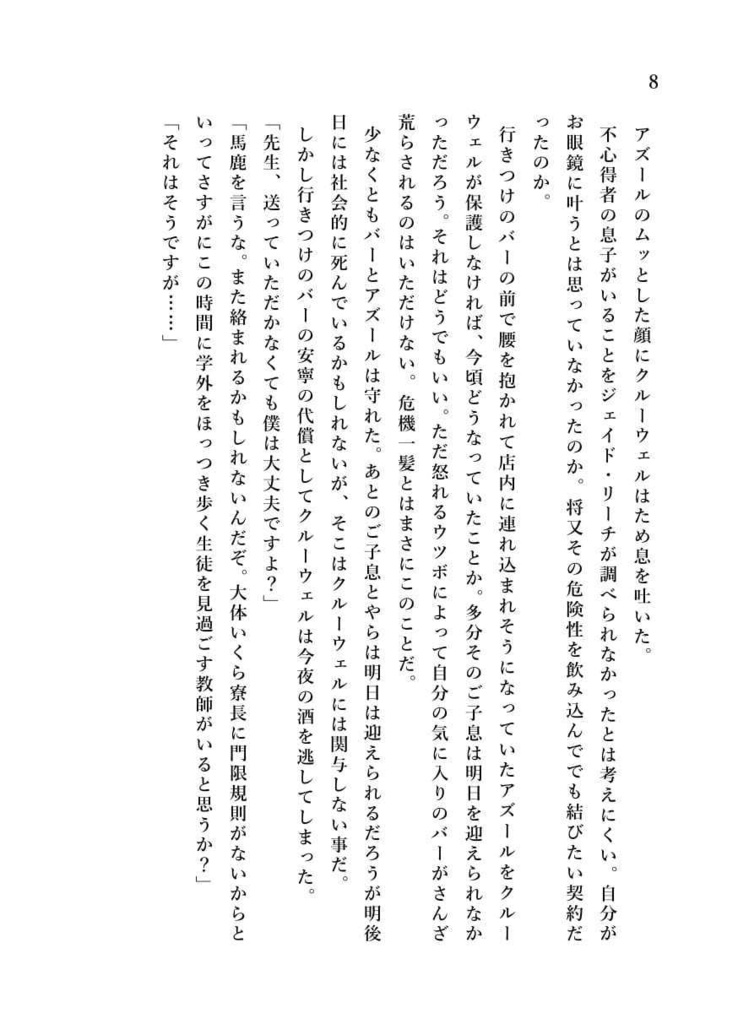 8
アズールのムッとした顔にクルーウェルはため息を吐いた。
不心得者の息子がいることをジェイド・リーチが調べられなかったとは考えにくい。自分が
お眼鏡に叶うとは思っていなかったのか。将又その危険性を飲み込んででも結びたい契約だ
ったのか。
行きつけのバーの前で腰を抱かれて店内に連れ込まれそうになっていたアズールをクルー
ウェルが保護しなければ、今頃どうなっていたことか。多分そのご子息は明日を迎えられなか
っただろう。それはどうでもいい。ただ怒れるウツボによって自分の気に入りのバーがさんざ
荒らされるのはいただけない。危機一髪とはまさにこのことだ。
少なくともバーとアズールは守れた。あとのご子息とやらは明日は迎えられるだろうが明後
日には社会的に死んでいるかもしれないが、そこはクルーウェルには関与しない事だ。
しかし行きつけのバーの安寧の代償としてクルーウェルは今夜の酒を逃してしまった。
「先生、送っていただかなくても僕は大丈夫ですよ？」
「馬鹿を言うな。また絡まれるかもしれないんだぞ。大体いくら寮長に門限規則がないからと
いってさすがにこの時間に学外をほっつき歩く生徒を見過ごす教師がいると思うか？」
「それはそうですが……」